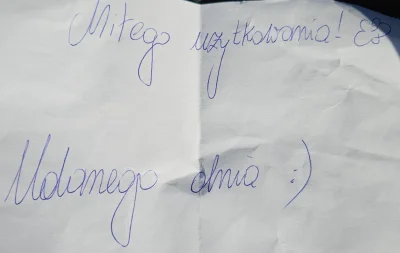 Miłego użytkowania!
Udanego dnia :)